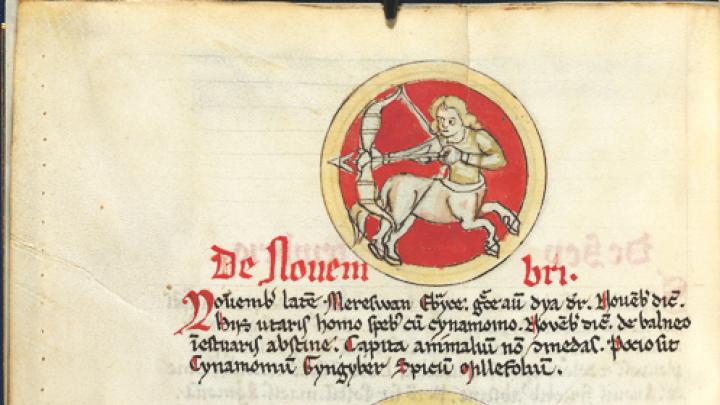 De Nouem bri.
Nouemb latē Mereswan Ebᷣice. gᷓce aū dya dr̄. Nouēb dic̄.
utaris homo cū cynamomo. Nouēb dic̄. de balneo
ī estuaris abstine. Capita animaliū nō ꝯmedas. Pocio sit
Cynamomū Gyngyber Spicū Millefoliū.